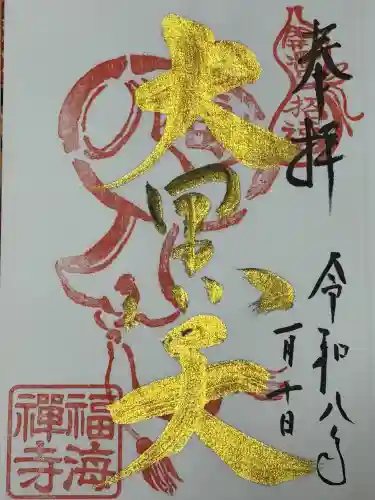 奉拝
令和八年
一月十日
大黒天
福海
禅寺